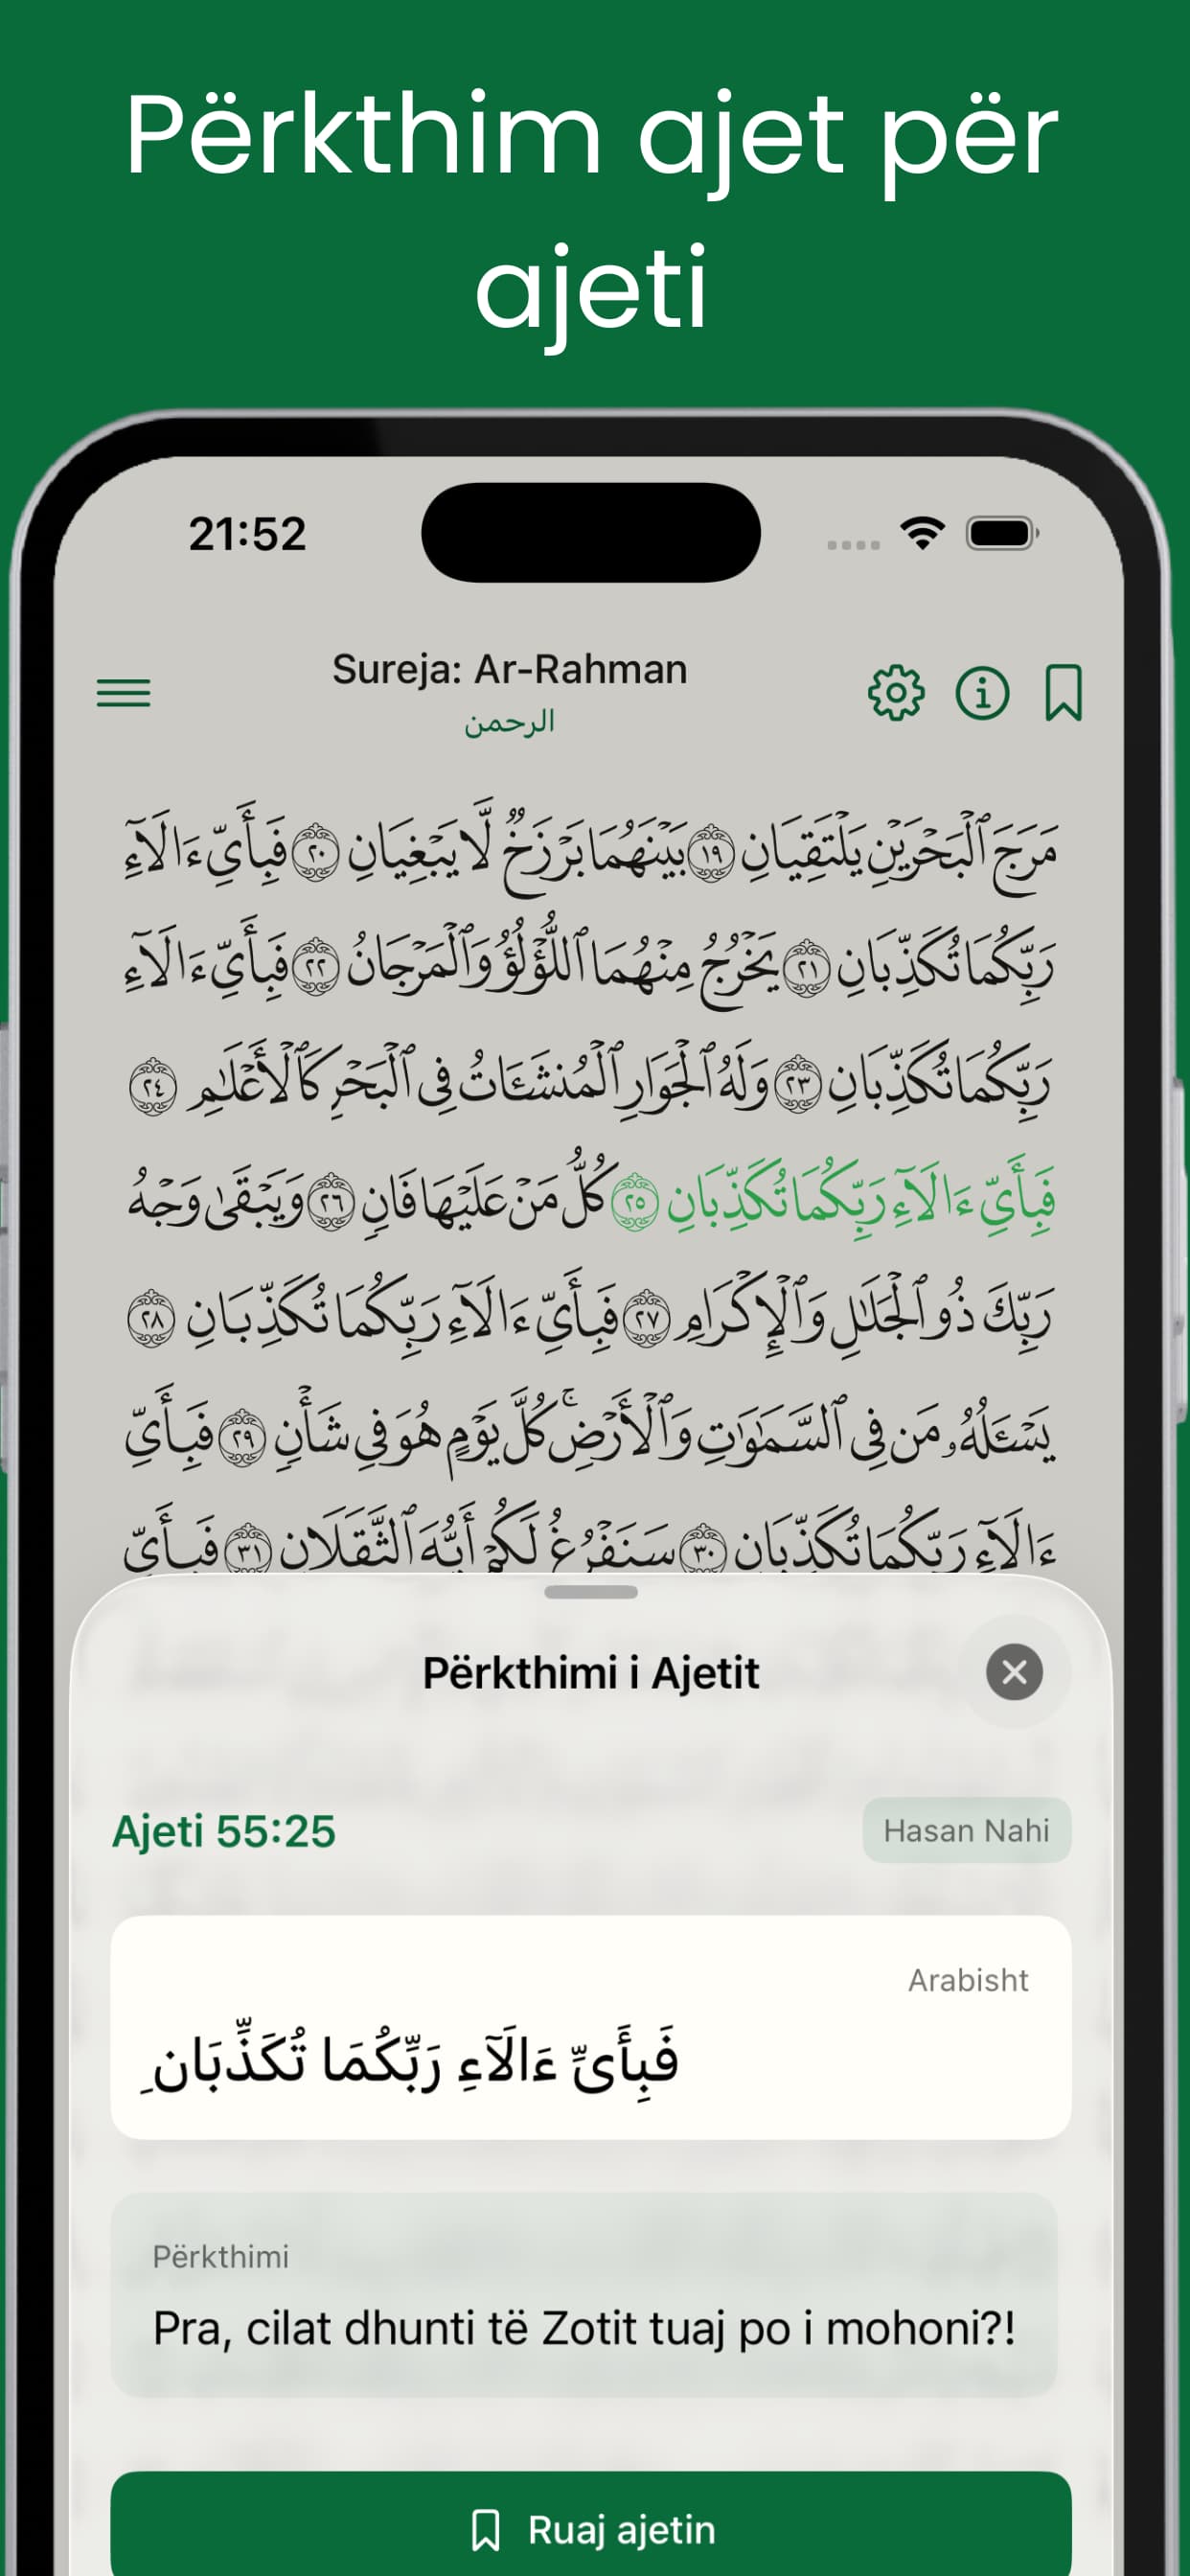 Përkthim ajet për
ajeti
21:52
Sureja: Ar-Rahman
الرحمن
مَرَجَ ٱلْبَحْرَيْنِ يَلْتَقِيَانِ ١٩ بَيْنَهُمَا بَرْزَخٌ لَّا يَبْغِيَانِ ٢٠ فَبِأَيِّ ءَالَآءِ
رَبِّكُمَا تُكَذِّبَانِ ٢١ يَخْرُجُ مِنْهُمَا ٱللُّؤْلُؤُ وَٱلْمَرْجَانُ ٢٢ فَبِأَيِّ ءَالَآءِ
رَبِّكُمَا تُكَذِّبَانِ ٢٣ وَلَهُ ٱلْجَوَارِ ٱلْمُنشَـَٔاتُ فِى ٱلْبَحْرِ كَٱلْأَعْلَـٰمِ ٢٤
فَبِأَيِّ ءَالَآءِ رَبِّكُمَا تُكَذِّبَانِ ٢٥ كُلُّ مَنْ عَلَيْهَا فَانٍ ٢٦ وَيَبْقَىٰ وَجْهُ
رَبِّكَ ذُو ٱلْجَلَـٰلِ وَٱلْإِكْرَامِ ٢٧ فَبِأَيِّ ءَالَآءِ رَبِّكُمَا تُكَذِّبَانِ ٢٨
يَسْـَٔلُهُۥ مَن فِى ٱلسَّمَـٰوَٰتِ وَٱلْأَرْضِ ۚ كُلَّ يَوْمٍ هُوَ فِى شَأْنٍ ٢٩ فَبِأَيِّ
ءَالَآءِ رَبِّكُمَا تُكَذِّبَانِ ٣٠ سَنَفْرُغُ لَكُمْ أَيُّهَ ٱلثَّقَلَانِ ٣١ فَبِأَيِّ
Përkthimi i Ajetit
Ajeti 55:25
Hasan Nahi
Arabisht
فَبِأَىِّ ءَالَآءِ رَبِّكُمَا تُكَذِّبَانِ
Përkthimi
Pra, cilat dhunti të Zotit tuaj po i mohoni?!
Ruaj ajetin